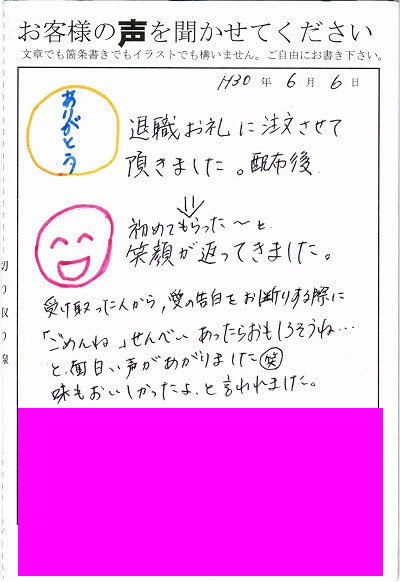 お客様の声を聞かせてください
文章でも箇条書きでもイラストでも構いません。ご自由にお書き下さい。
H30年 6月 6日
ありがとう
退職お礼に注文させて
頂きました。配布後
⇓
初めてもらった〜と
笑顔が返ってきました。
受け取った人から,愛の告白をお断りする際に
「ごめんね」せんべい あったらおもしろそうね…
と、面白い声があがりました㊗笑
味もおいしかったよ、と言われました。
切り取り線